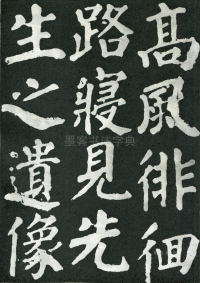 高風徘徊
路寢見先
生之遺像
墨客书法字典